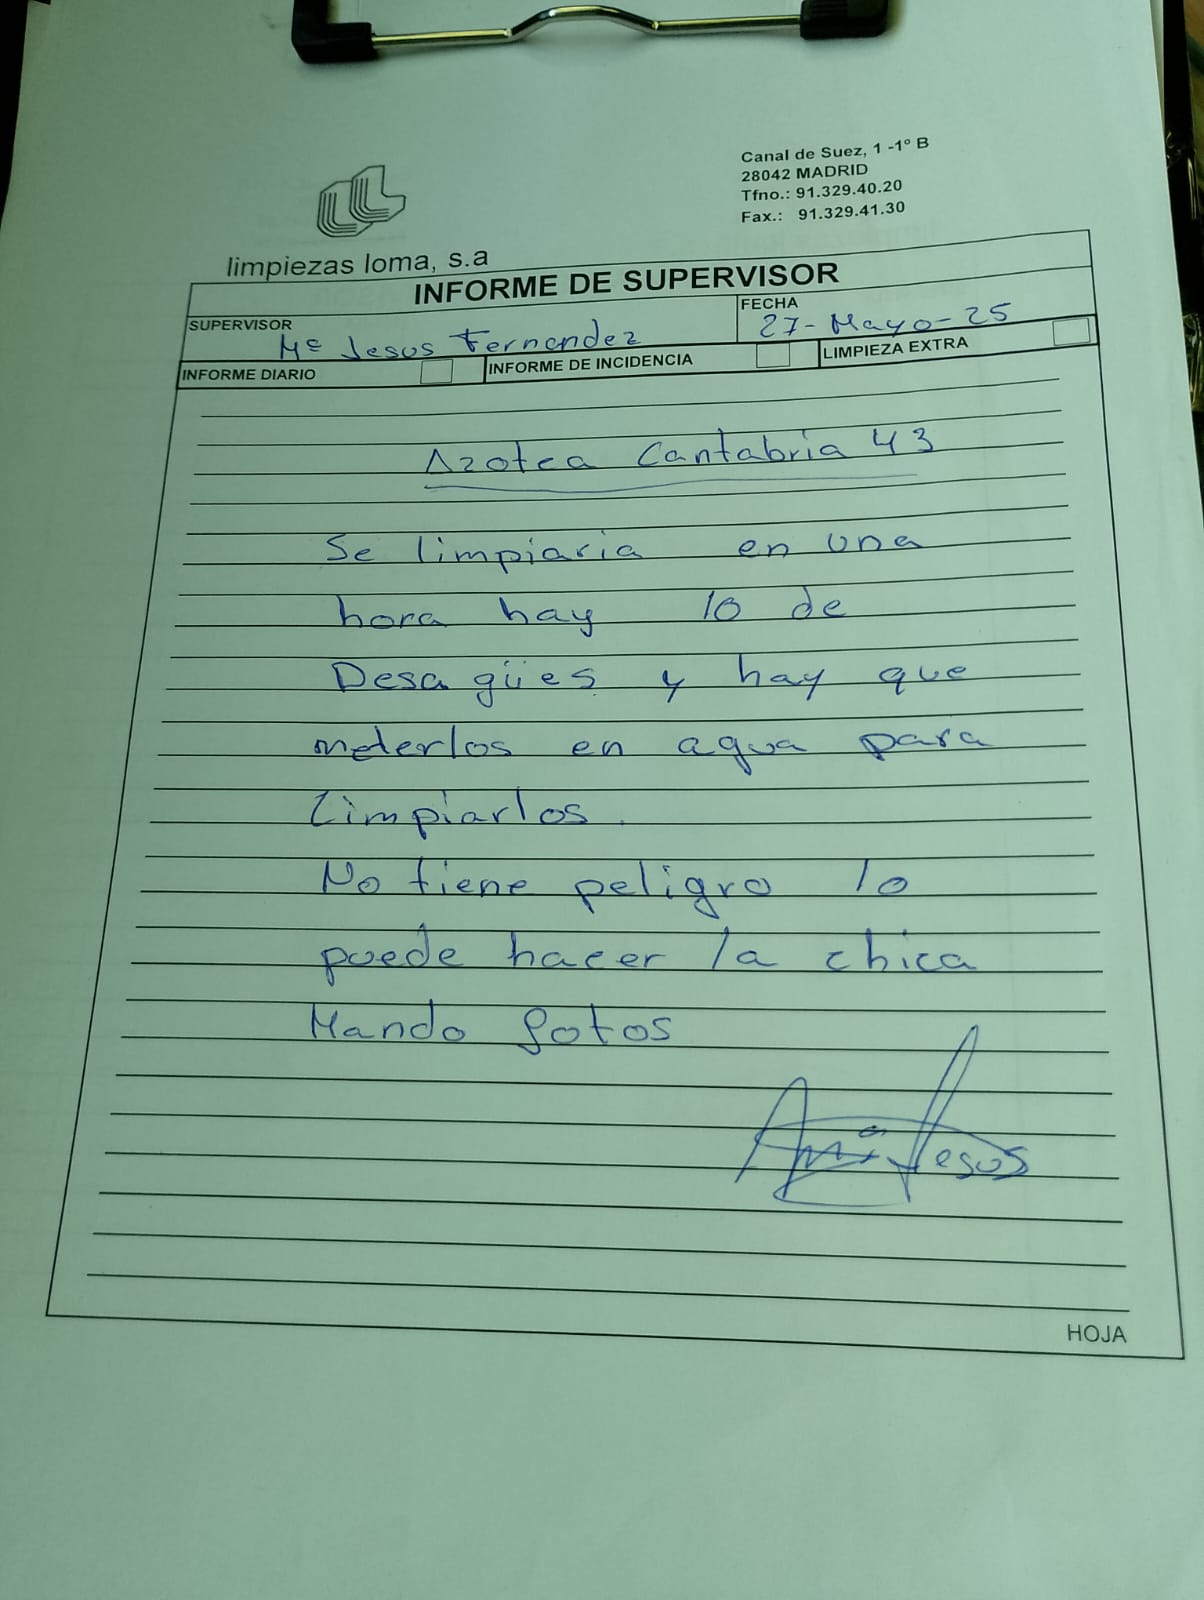 Canal de Suez, 1 -1º B
28042 MADRID
Tfno.: 91.329.40.20
Fax.: 91.329.41.30
limpiezas loma, s.a
INFORME DE SUPERVISOR
SUPERVISOR
Mª Jesus Fernandez
FECHA
27-Mayo-25
INFORME DIARIO
INFORME DE INCIDENCIA
LIMPIEZA EXTRA
Azotea Cantabria 43
Se limpiaria en una
hora hay 10 de
Desagües y hay que
meterlos en agua para
Limpiarlos.
No tiene peligro lo
puede hacer la chica
Mando fotos
Jesus
HOJA